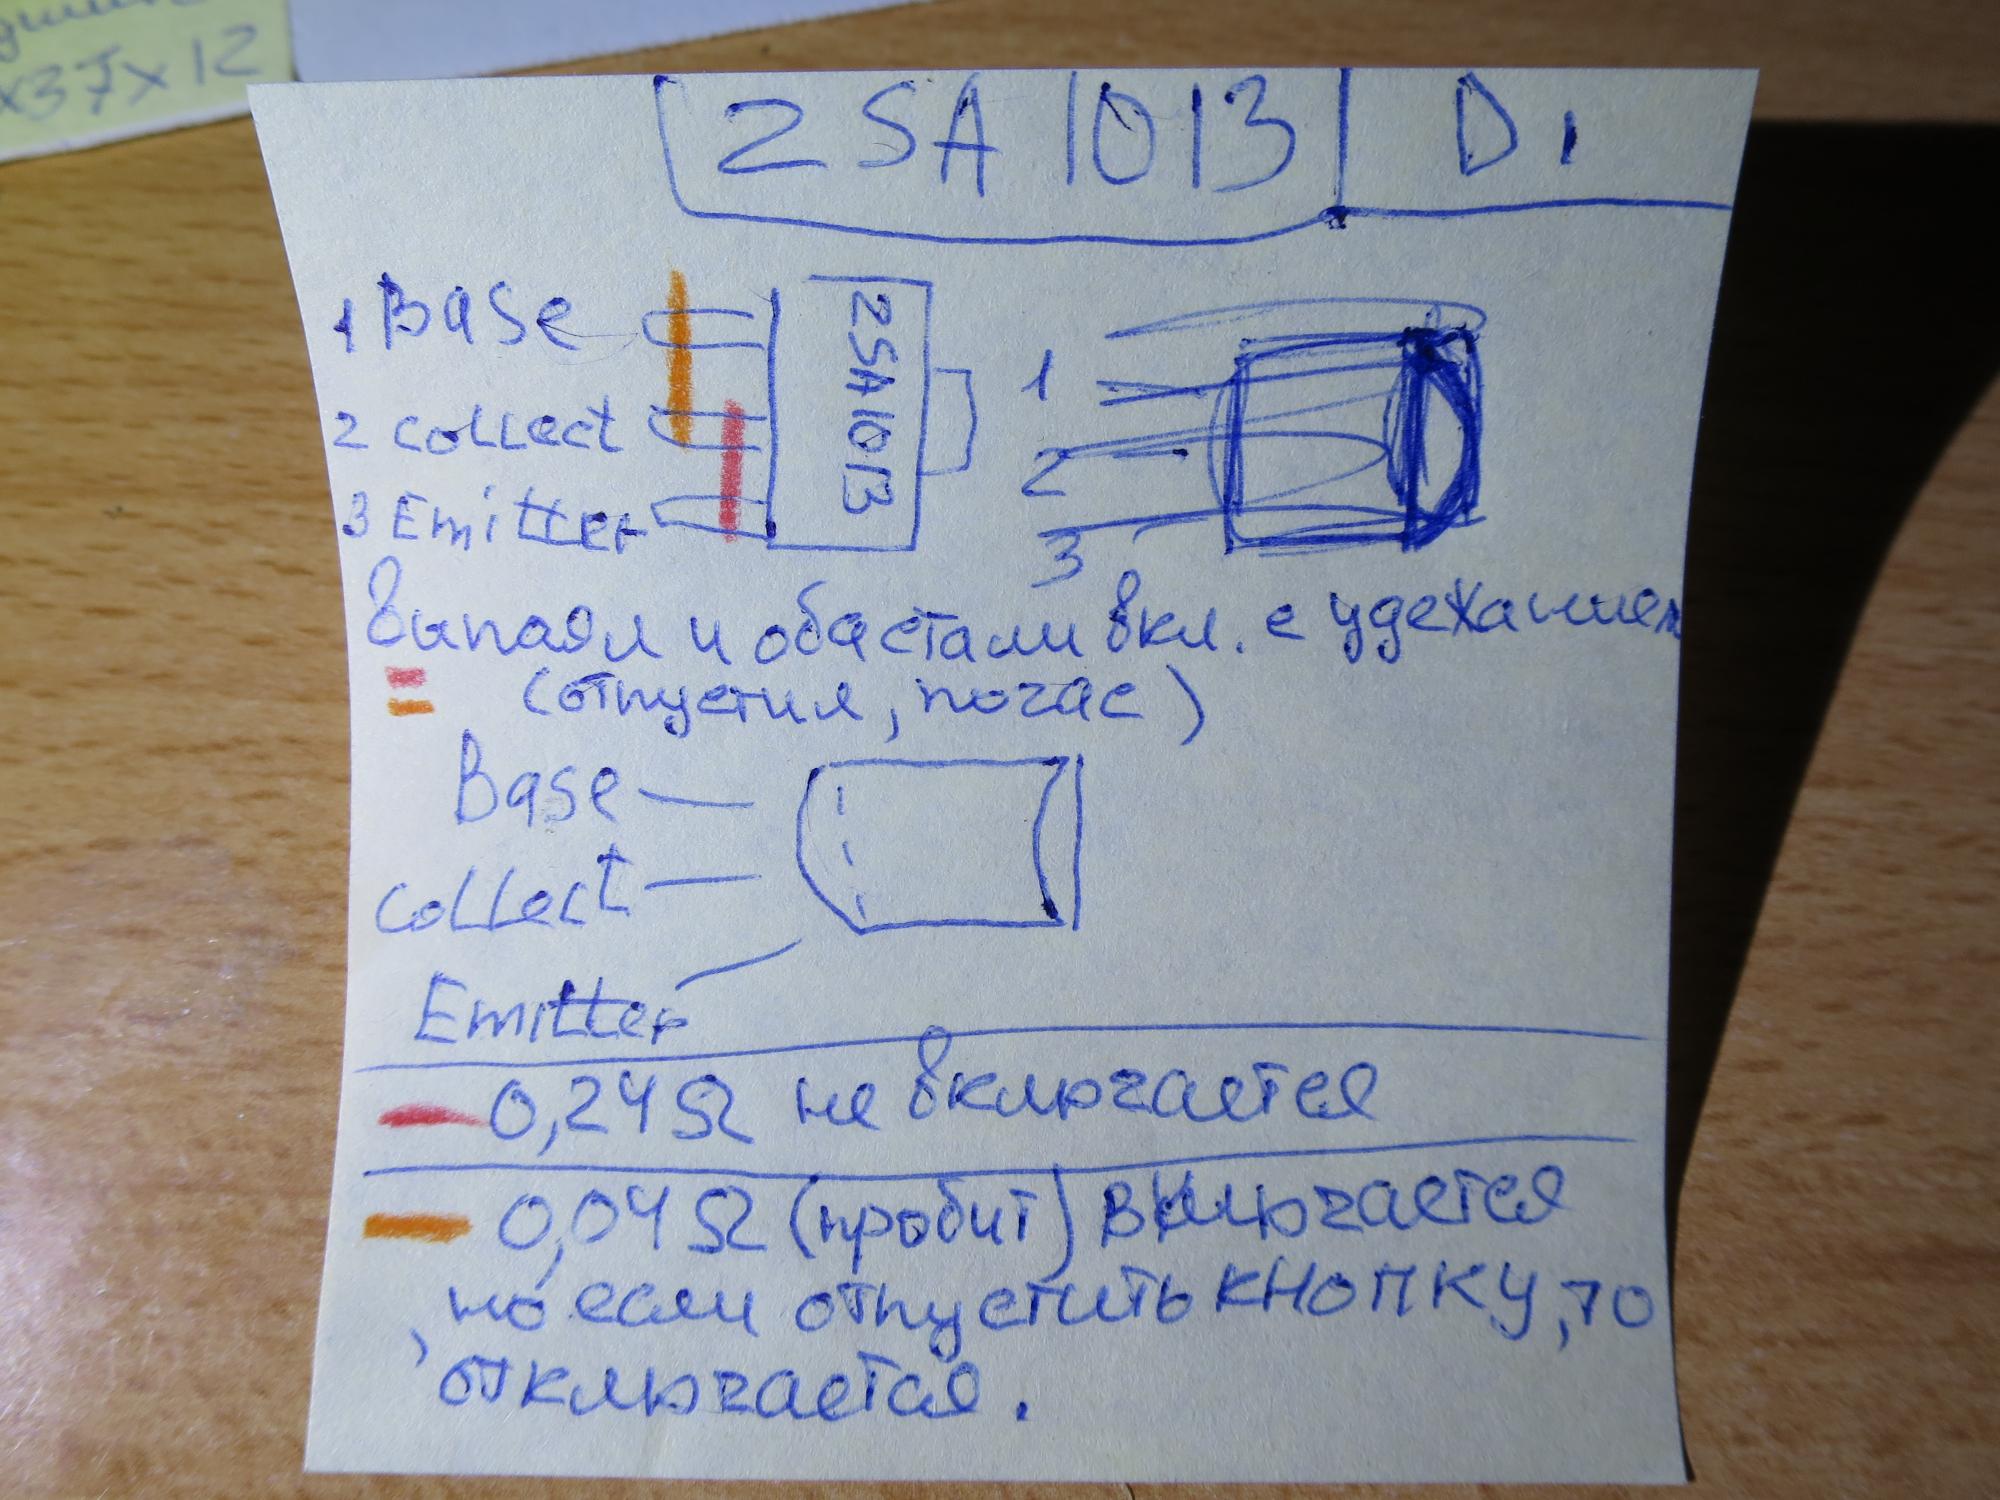 x37x12
2SA1013 D1
1 Base
2SA1013
1
2 collect
2
3 Emitter
3
выпаял и оба стали вкл. с удежанием
(отпустил, погас)
Base
collect
Emitter
0,24Ω не включается
0,04Ω (пробит) включается
, но если отпустить кнопку, то
отключается.